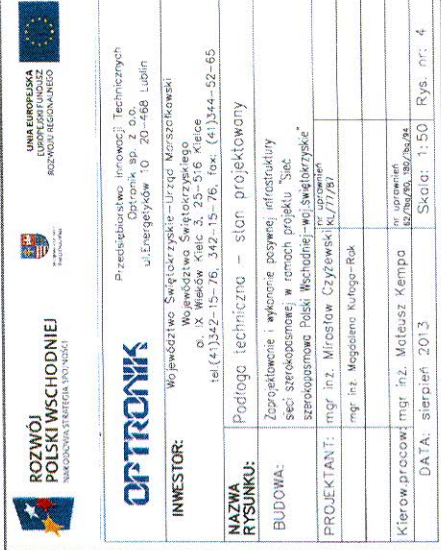 ROZWÓJ
POLSKI WSCHODNIEJ
NARODOWA STRATEGIA SPÓJNOŚCI
UNIA EUROPEJSKA
EUROPEJSKI FUNDUSZ
ROZWOJU REGIONALNEGO
OPTRONIK
Przedsiębiorstwo Innowacji Technicznych
Optronik sp. z o.o.
ul.Energetyków 10 20-468 Lublin
INWESTOR:
Województwo Świętokrzyskie-Urząd Marszałkowski
Województwa Świętokrzyskiego
al. IX Wieków Kielc 3, 25-516 Kielce
tel.(41)342-15-76, 342-15-76, fax: (41)344-52-65
NAZWA
RYSUNKU:
Podłoga techniczna - stan projektowany
BUDOWA:
Zaprojektowanie i wykonanie pasywnej infrastruktury
sieci szerokopasmowej w ramach projektu "Sieć
szerokopasmowa Polski Wschodniej-woj.świętokrzyskie"
PROJEKTANT: mgr inż. Mirosław Czyżewski
nr uprawnień
KL/77/87
mgr inż. Magdalena Kułaga-Rak
Kierow.pracow: mgr inż. Mateusz Kempa
nr uprawnień
62/Tbg/90, 180/Tbg/94
DATA: sierpień 2013 Skala: 1:50 Rys. nr: 4